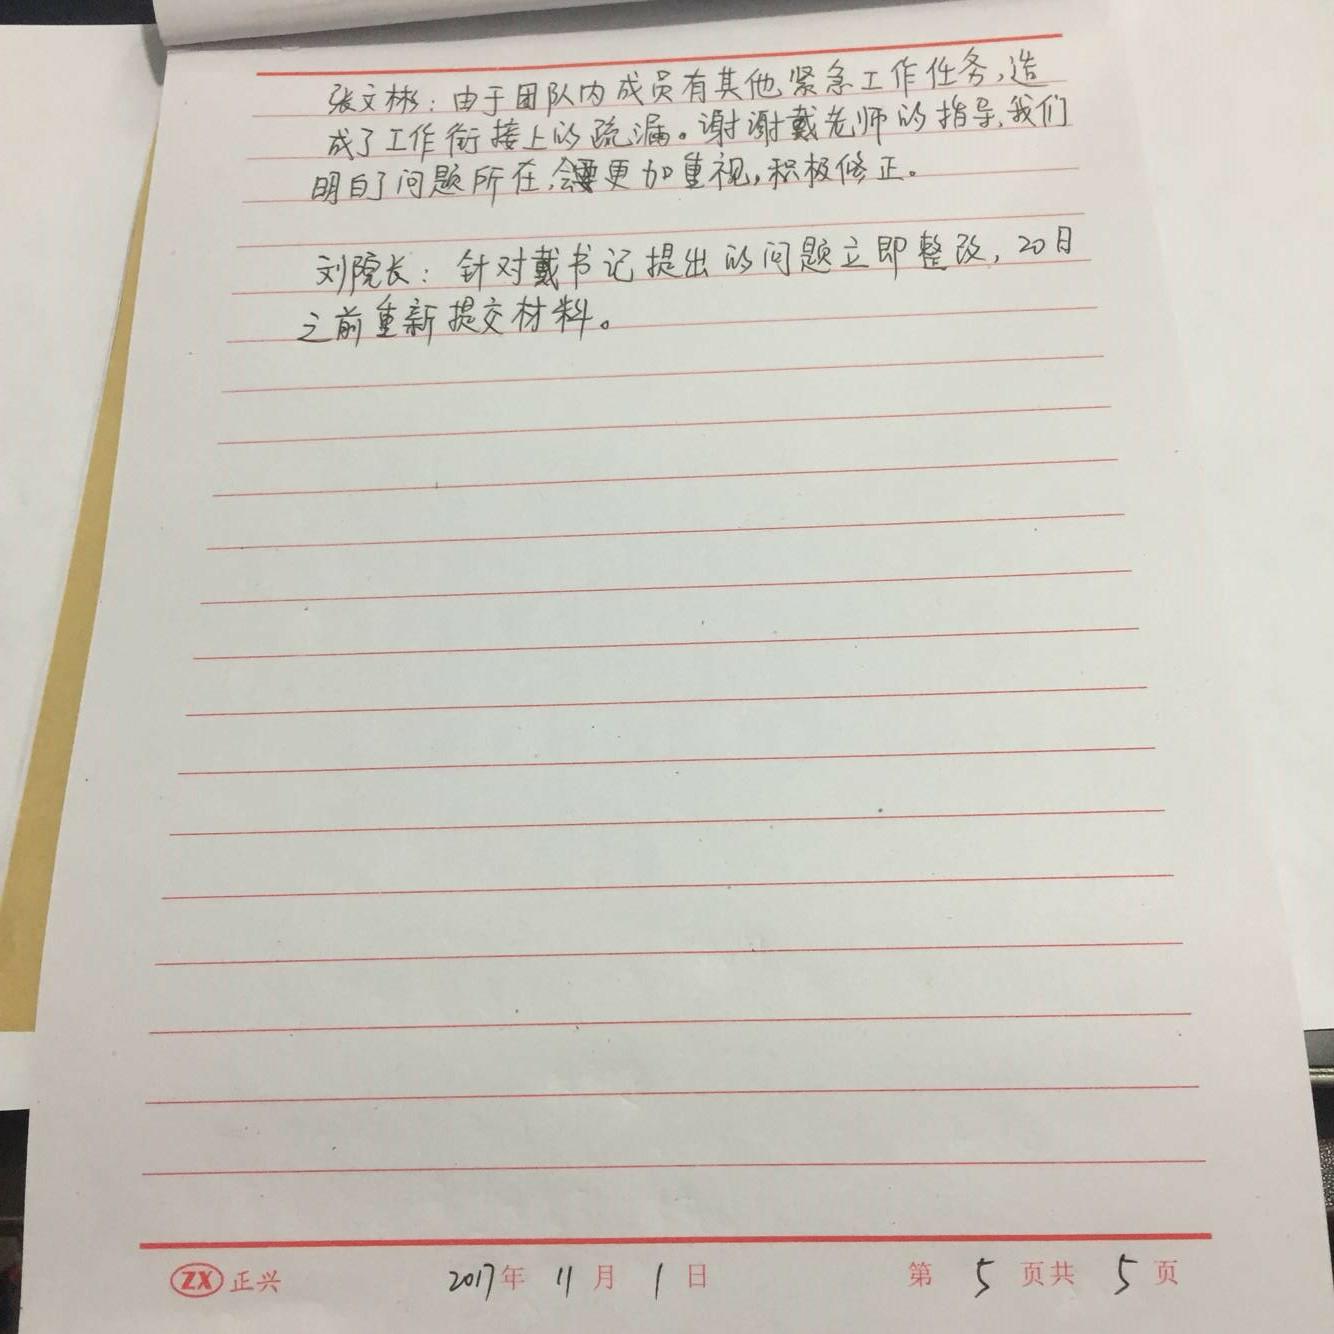 张文彬：由于团队内成员有其他紧急工作任务，造
成了工作衔接上的疏漏。谢谢戴老师的指导，我们
明白了问题所在，会更加重视，积极修正。
刘院长：针对戴书记提出的问题立即整改，20日
之前重新提交材料。
ZX 正兴 2017年 11月 1日 第 5 页共 5 页